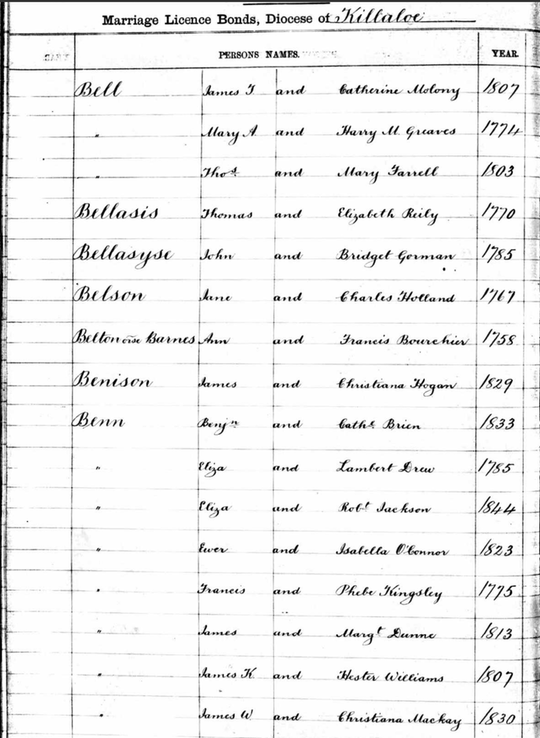 Marriage Licence Bonds, Diocese of Killaloe
PERSONS NAMES. YEAR.
Bell James T and Catherine Molony 1807
" Mary A and Harry M Greaves 1774
" Thos. and Mary Farrell 1803
Bellasis Thomas and Elizabeth Reily 1770
Bellasyse John and Bridget Gorman 1785
Belson Jane and Charles Holland 1767
Belton orse Barnes Ann and Francis Bourchier 1758
Benison James and Christiana Hogan 1829
Benn Benjn and Cathe Brien 1833
" Eliza and Lambert Drew 1785
" Eliza and Robt Jackson 1844
" Ewer and Isabella O'Connor 1823
" Francis and Phebe Kingsley 1775
" James and Margt Dunne 1813
" James K and Hester Williams 1807
" James W and Christiana Mackay 1830